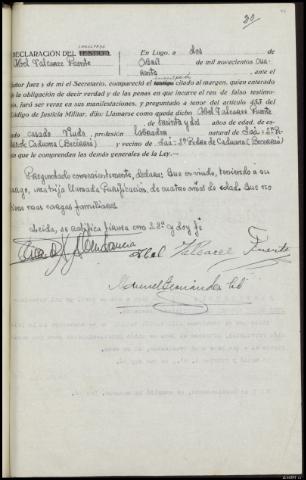 30
DECLARACIÓN DEL
Abel Valcarce Fuente
En Lugo a dos de
Abril de mil novecientos cua-
renta, ante el
Señor Juez y de mi el Secretario, compareció el testigo citado al margen, quien enterado
de la obligación de decir verdad y de las penas en que incurre el reo de falso testimo-
nio, juró ser veraz en sus manifestaciones, y preguntado a tenor del artículo 453 del
Código de Justicia Militar, dijo: Llamarse como queda dicho Abel Valcarce Fuente
, de treinta y dos años de edad, de es-
tado casado Viudo, profesión labrador, natural de
(Becerreá) y vecino de (Becerreá)
y que le comprenden las demás generales de la Ley.
Preguntado convenientemente, declara: Que es viudo, teniendo a su
cargo, una hija llamada Purificación, de cuatro años de edad. Que no
tiene mas cargas familiares
Leida, se ratifica firma con S.Sª doy fé
Abel Valcarce Fuente
Manuel Fernández